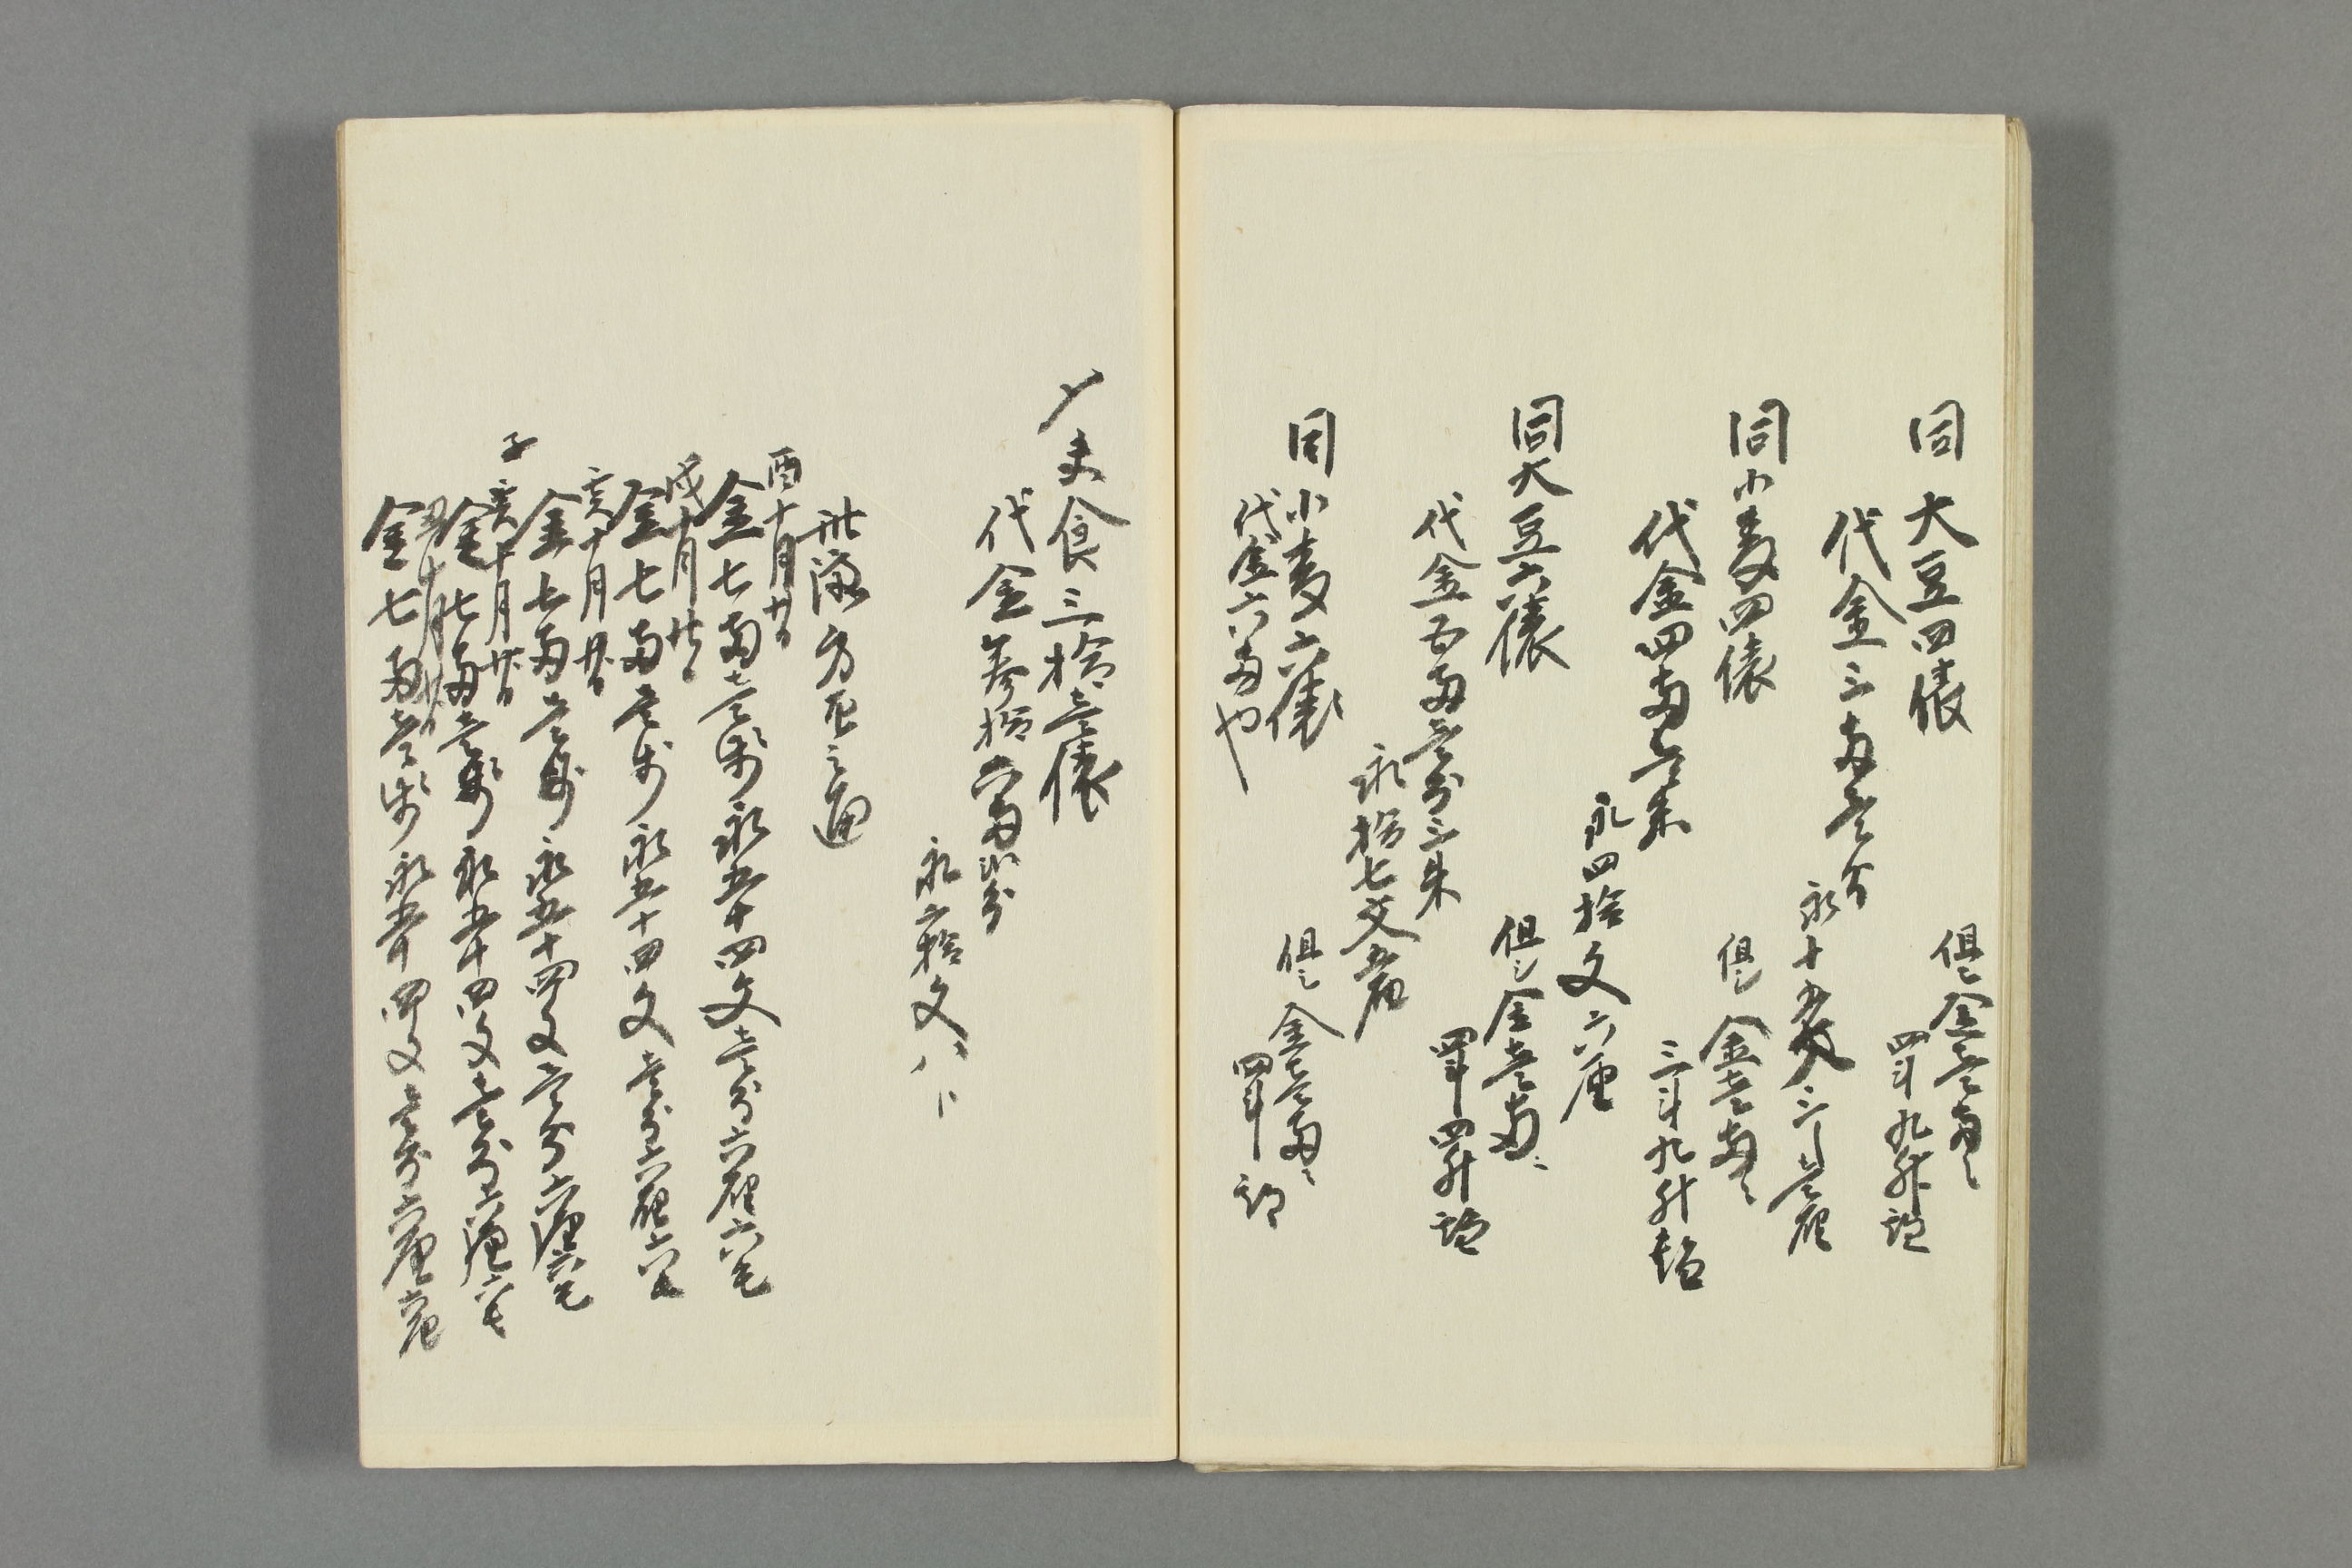 同 大豆四俵
但シ金壱両ニ
四斗九升詰
代金三両壱分
永十五文三分壱厘
同 小麦四俵
但シ 金壱両ニ
三斗九升替
代金四両壱朱
永四拾文六厘
同 大豆六俵
但シ金壱両ニ
四斗四升詰
代金五両壱分三朱
永拾七文五厘
同 小麦六俵
但シ 金壱両ニ
四斗
代金六両也
〆夫食三拾壱俵
代金参拾六両弐分
永六拾文八
此済方五ヶ
酉十月廿日
金七両壱歩 永五十四文壱分六厘六毛
戌十月廿日
金七両壱歩 永五十四文壱分六厘六毛
亥十月廿日
金七両壱歩 永五十四文壱分六厘六毛
子
亥十月廿日
金七両壱歩 永五十四文壱分六厘六毛
丑十月廿日
金七両壱歩 永五十四文壱分六厘六毛